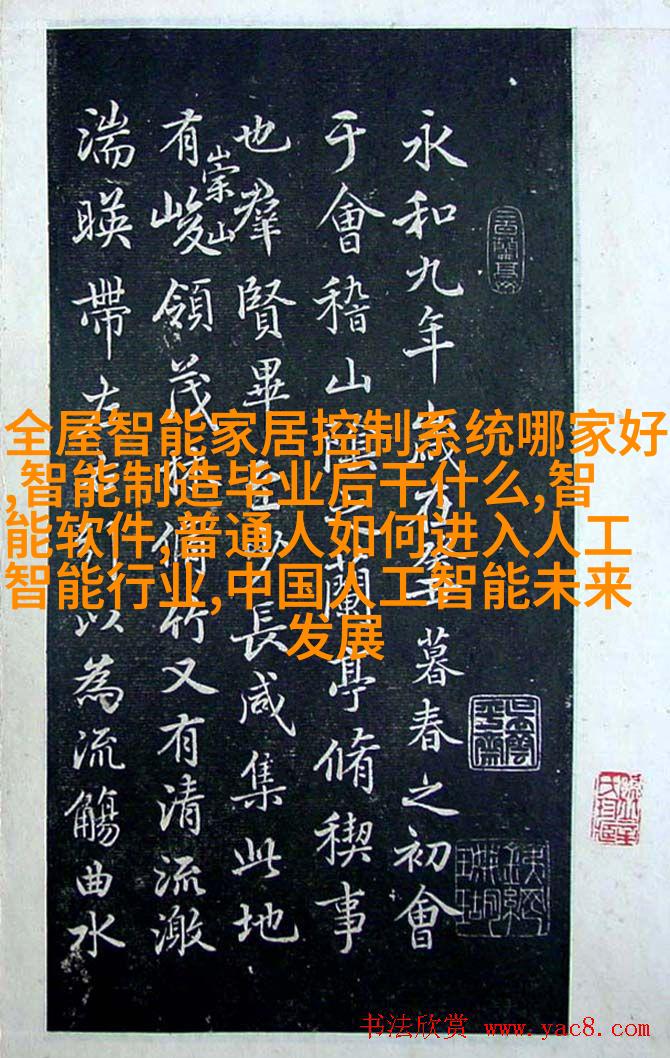 永和九年歲在癸暮春之初會
于會稽山陰蘭亭脩稧事
也羣賢畢至少長咸集此地
有崇山峻領茂林脩竹又有清流激
湍暎帶左以為流觴曲水
全屋智能家居控制系统哪家好
,智能制造毕业后干什么,智
能软件,普通人如何进入人工
智能行业,中国人工智能未来
发展
书法欣赏 www.yac8.com